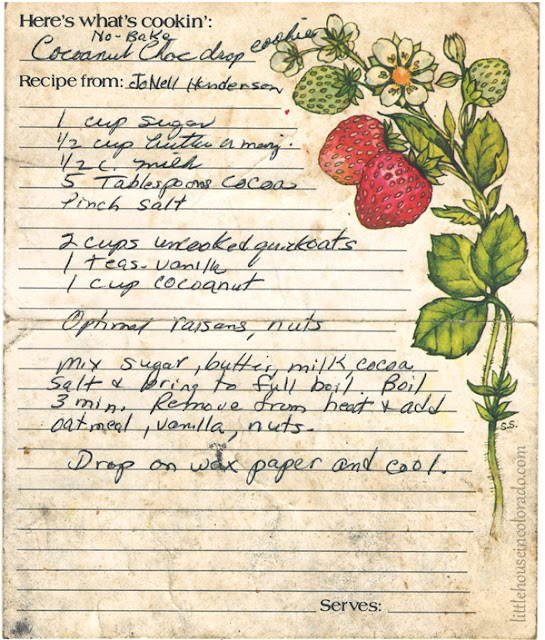 Here's what's cookin':
No-Bake
Cocoanut Choc drop cookies
Recipe from: JoNell Henderson
1 cup sugar
1/2 cup butter or marg.
1/2 c. milk
5 Tablespoons cocoa
Pinch salt
2 cups uncooked quickoats
1 teas. vanilla
1 cup cocoanut
Optional raisens, nuts
Mix sugar, butter, milk, cocoa
Salt & bring to full boil. Boil
3 min. Remove from heat & add
oatmeal, vanilla, nuts.
Drop on wax paper and cool.
S.S.
littlehouseincolorado.com
Serves: